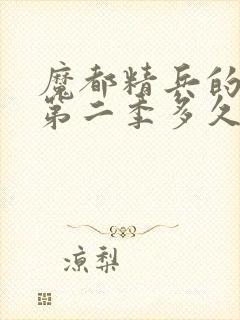 魔都精兵的
第二季多久
凉梨